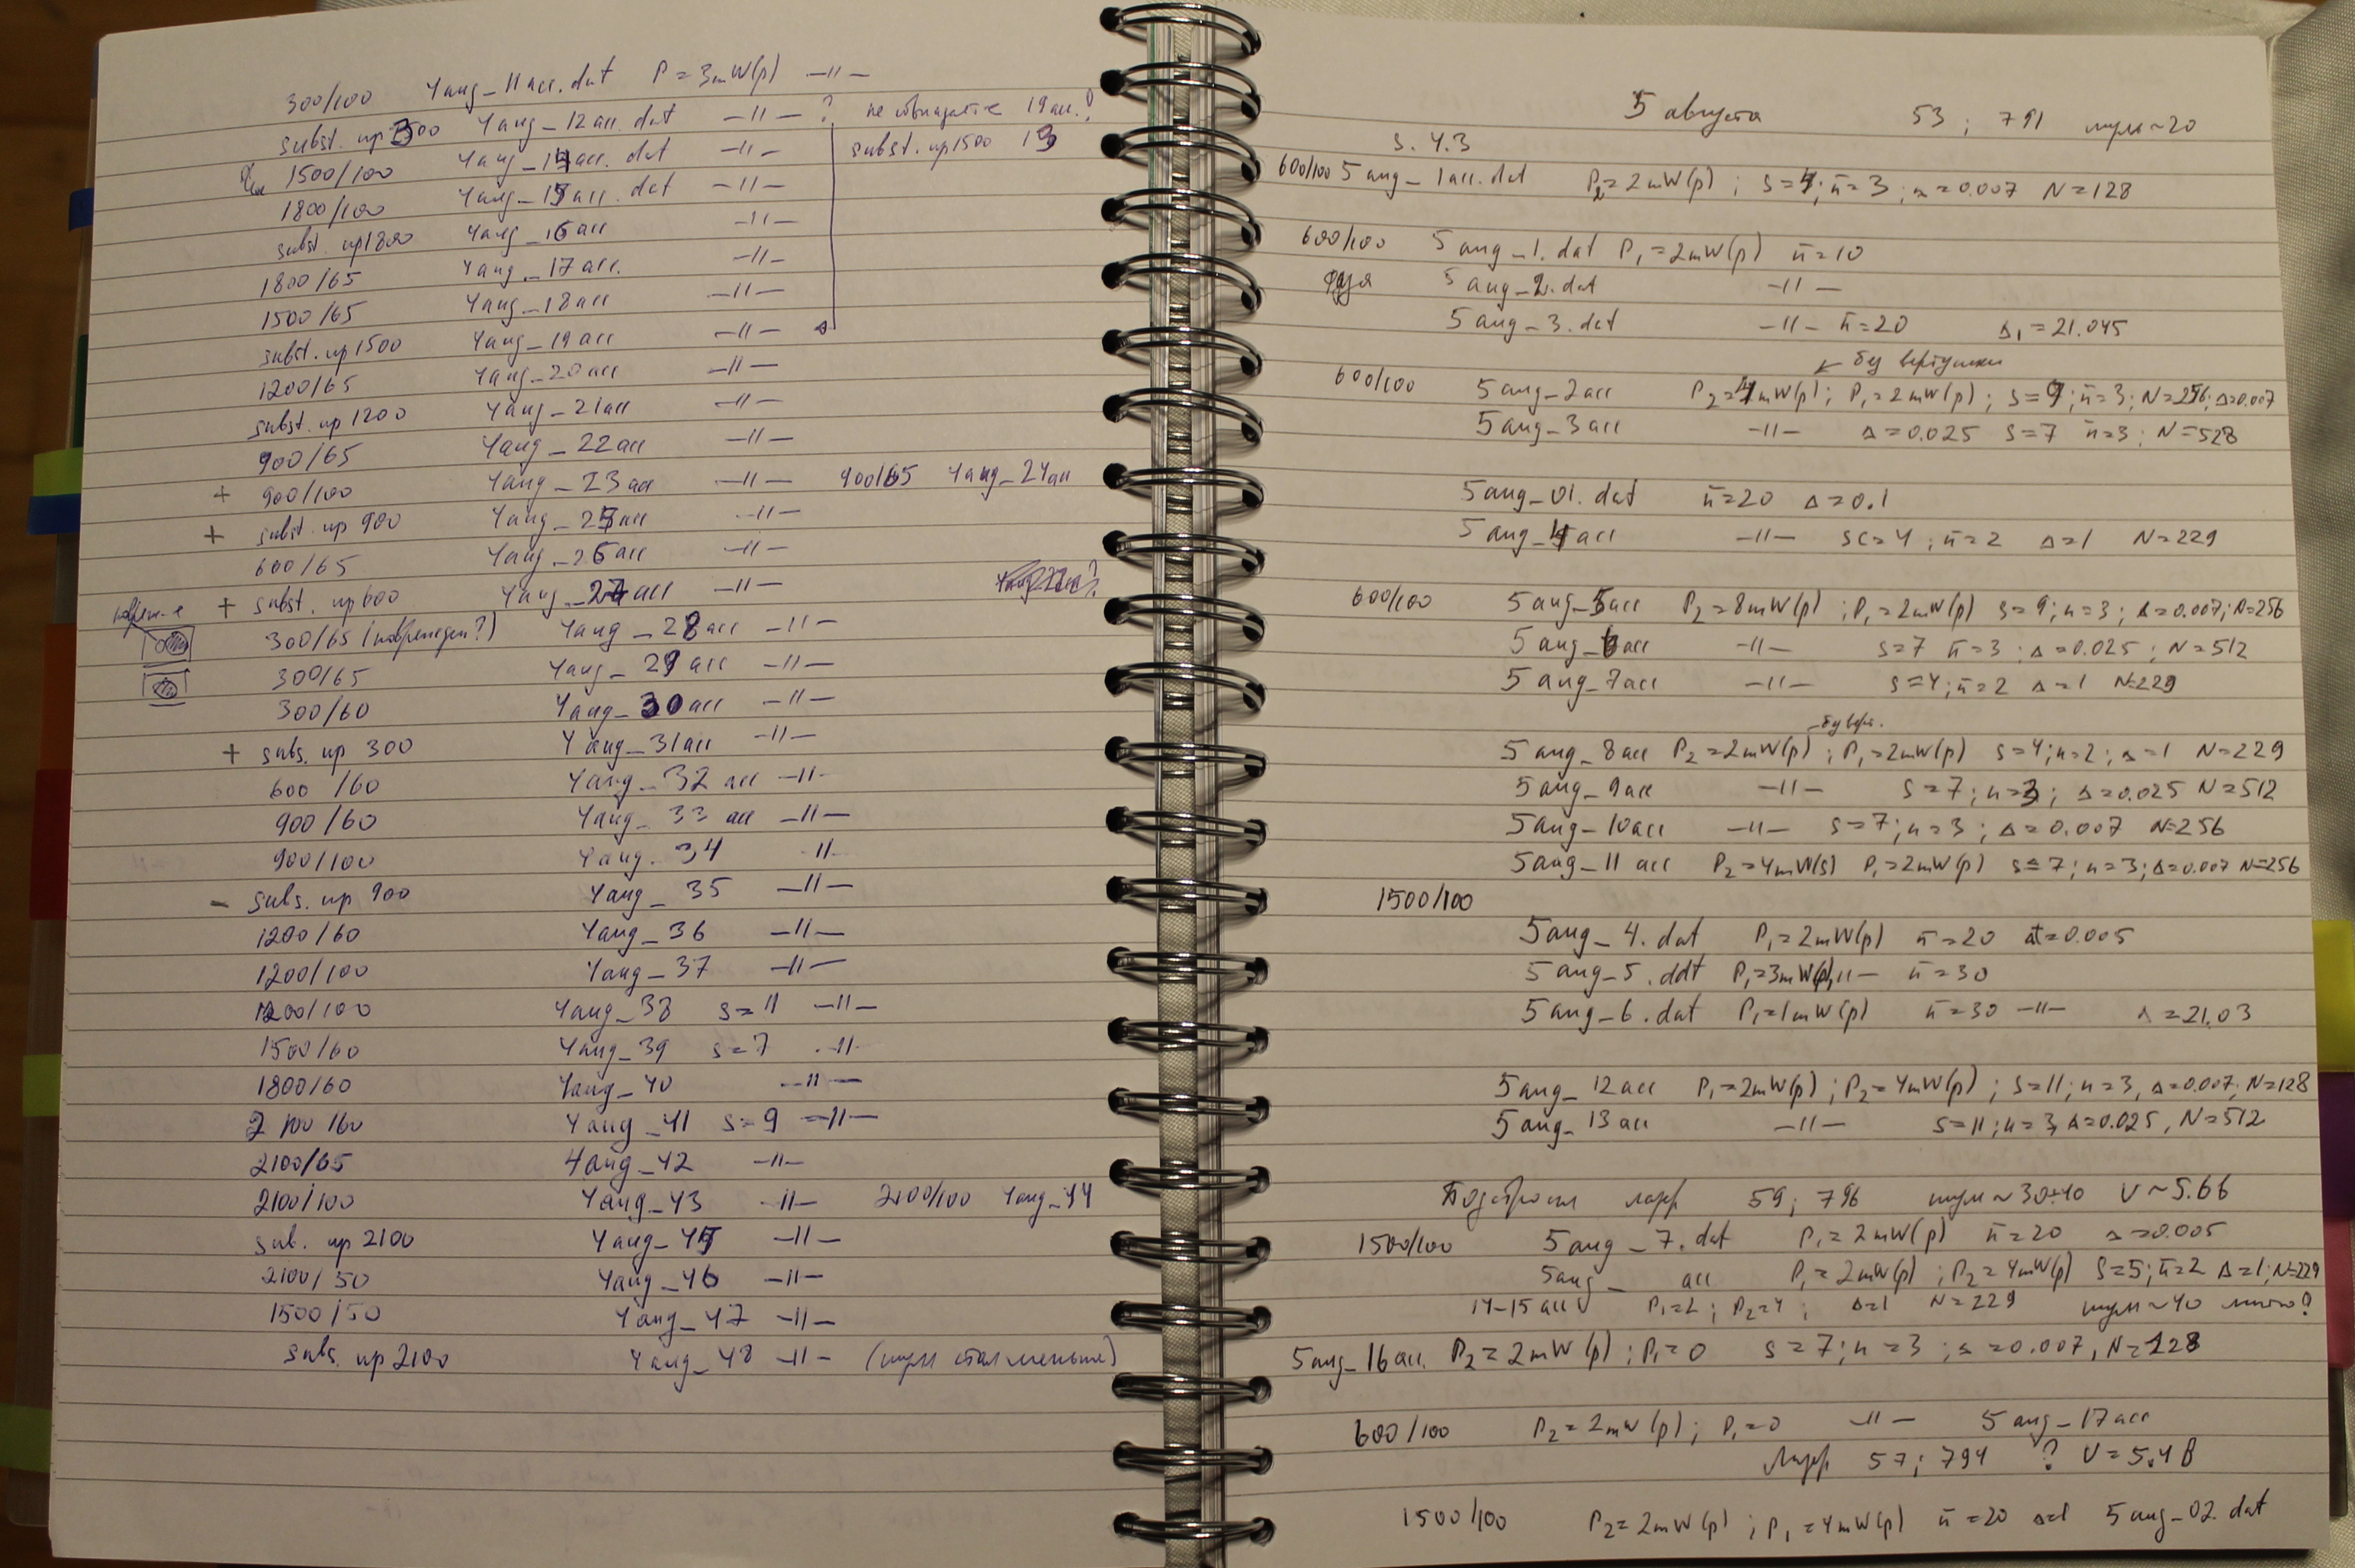 300/100 4aug_11acc.dat P=3mW(p) —11—
subst. up 300 4aug_12acc.dat —11— ? не совпадает с 19acc.?
1500/100 4aug_14acc.dat —11— subst. up1500 13
1800/100 4aug_15acc.dat —11—
subst. up1800 4aug_16acc —11—
1800/65 4aug_17acc. —11—
1500/65 4aug_18acc —11—
subst. up1500 4aug_19acc —11—
1200/65 4aug_20acc —11—
subst. up 1200 4aug_21acc —11—
900/65 4aug_22acc —11—
+ 900/100 4aug_23acc —11— 900/65 4aug_24acc
+ subst. up 900 4aug_25acc —11—
600/65 4aug_26acc —11—
+ subst. up600 4aug_27acc —11—
300/65 (поврежден?) 4aug_28acc —11—
300/65 4aug_29acc —11—
300/60 4aug_30acc —11—
+ subs. up 300 4aug_31acc —11—
600/60 4aug_32acc —11—
900/60 4aug_33acc —11—
900/100 4aug_34 —11—
- subs. up 900 4aug_35 —11—
1200/60 4aug_36 —11—
1200/100 4aug_37 —11—
1200/100 4aug_38 s=11 —11—
1500/60 4aug_39 s=7 —11—
1800/60 4aug_40 —11—
2100/60 4aug_41 s=9 —11—
2100/65 4aug_42 —11—
2100/100 4aug_43 —11— 2100/100 4aug_44
sub. up 2100 4aug_45 —11—
2100/50 4aug_46 —11—
1500/50 4aug_47 —11—
subs. up 2100 4aug_48 —11— (шум стал меньше)
5 августа 53; 791 шум~20
s. 4.3
600/100 5aug_1acc.dat P₂=2mW(p); s=4; n̄=3; Δ=0.007 N=128
600/100 5aug_1.dat P₁=2mW(p) n̄=10
5aug_2.dat —11—
5aug_3.dat —11— n̄=20 Δ₁=21.045
← без вертушки
600/100 5aug_2acc P₂=4mW(p); P₁=2mW(p); s=9; n̄=3; N=256; Δ=0.007
5aug_3acc —11— Δ=0.025 s=7 n̄=3; N=528
5aug_01.dat n̄=20 Δ=0.1
5aug_4acc —11— sc=4; n̄=2 Δ=1 N=229
600/100 5aug_5acc P₂=8mW(p); P₁=2mW(p) s=9; n=3; Δ=0.007; N=256
5aug_6acc —11— s=7 n̄=3; Δ=0.025; N=512
5aug_7acc —11— s=4; n̄=2 Δ=1 N=229
без верт.
5aug_8acc P₂=2mW(p); P₁=2mW(p) s=4; n=2; Δ=1 N=229
5aug_9acc —11— s=7; n=3; Δ=0.025 N=512
5aug_10acc —11— s=7; n=3; Δ=0.007 N=256
5aug_11acc P₂=4mW(s) P₁=2mW(p) s=7; n=3; Δ=0.007 N=256
1500/100
5aug_4.dat P₁=2mW(p) n̄=20 Δt=0.005
5aug_5.ddt P₁=3mW(p) —11— n̄=30
5aug_6.dat P₁=1mW(p) n̄=30 —11— Δ=21.03
5aug_12acc P₁=2mW(p); P₂=4mW(p); s=11; n=3, Δ=0.007; N=128
5aug_13acc —11— s=11; n=3, Δ=0.025, N=512
Подстроил лазер 59; 796 шум~30÷40 V~5.66
1500/100 5aug_7.dat P₁=2mW(p) n̄=20 Δ=0.005
5aug_ acc P₁=2mW(p); P₂=4mW(p) s=5; n̄=2 Δ=1; N=229
14-15acc P₁=2; P₂=4; Δ=1 N=229 шум~40 много?
5aug_16acc. P₂=2mW(p); P₁=0 s=7; n=3; Δ=0.007, N=128
600/100 P₂=2mW(p); P₁=0 —11— 5aug_17acc
Лазер 57; 794 ? V=5.48
1500/100 P₂=2mW(p); P₁=4mW(p) n̄=20 Δ=1 5aug_02.dat